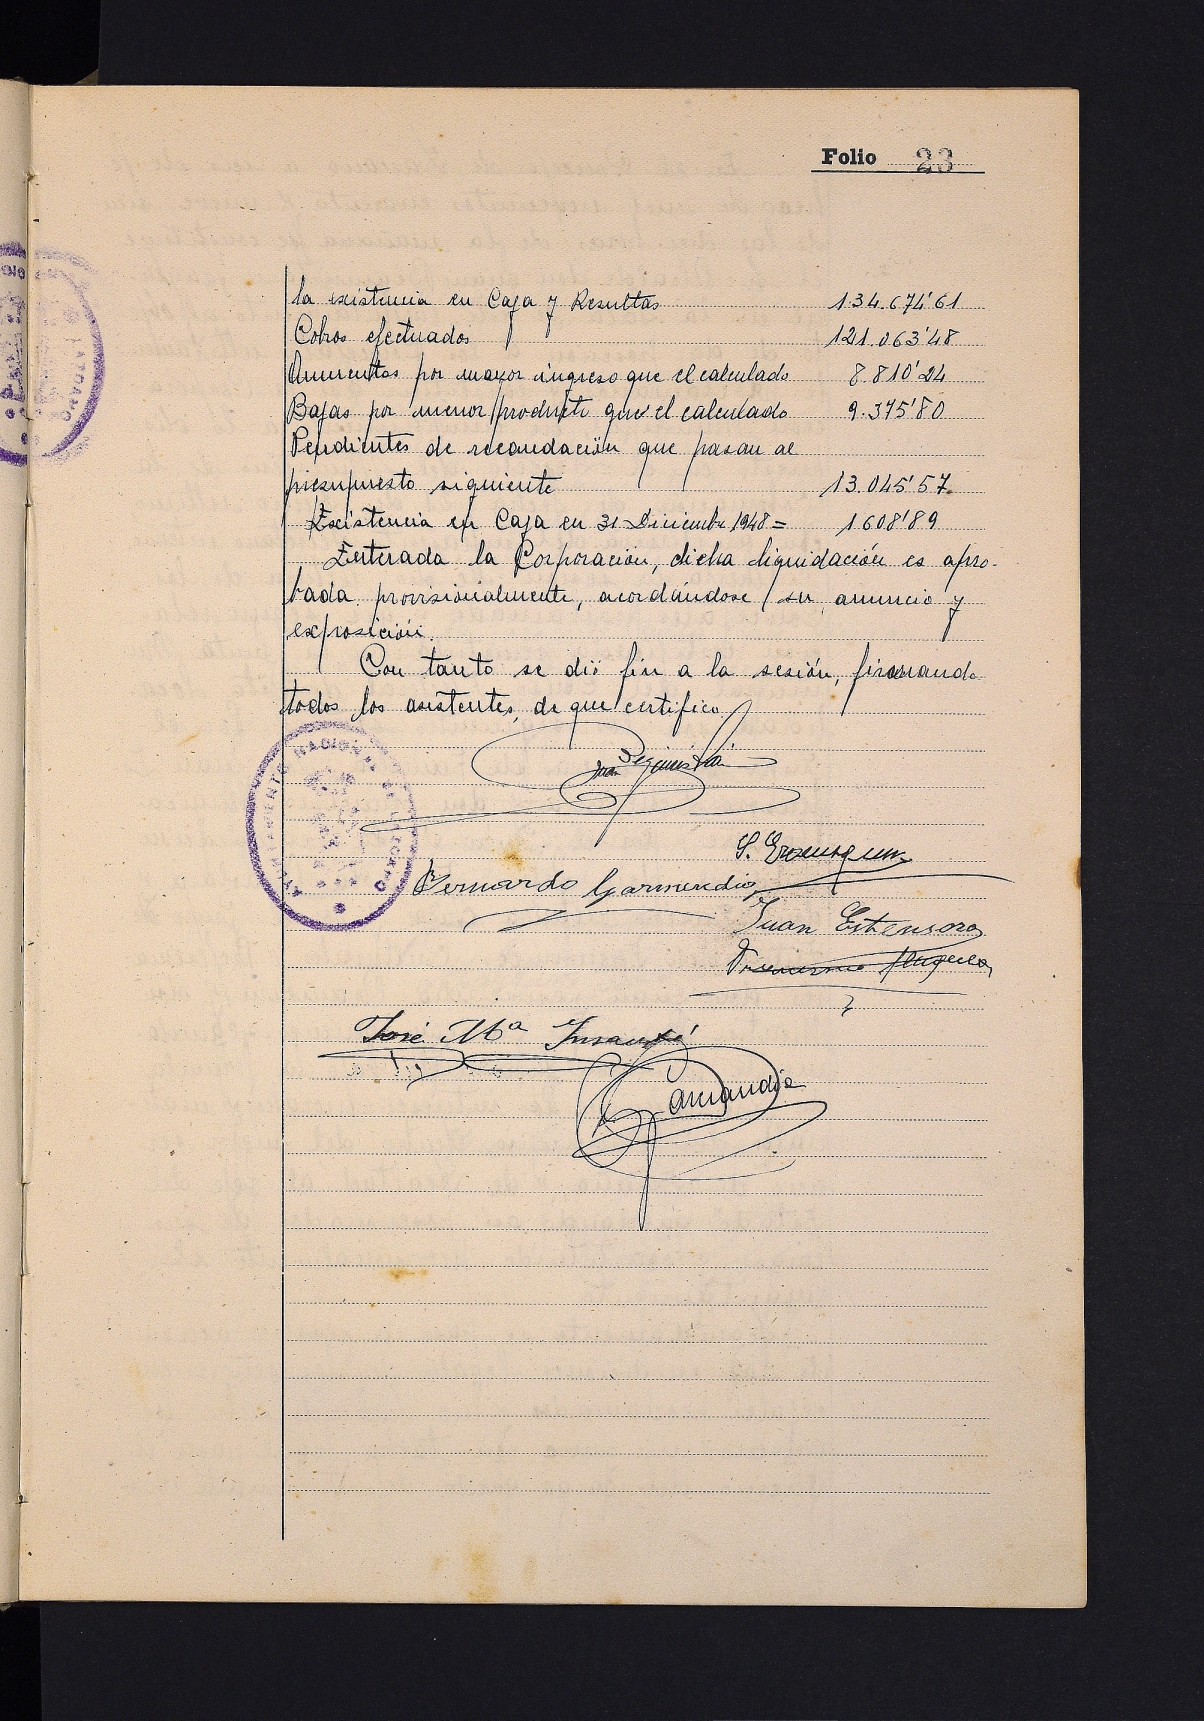 Folio 23
la existencia en Caja y Resultas 134.674'61
Cobros efectuados 121.063'48
Aumentos por mayor ingreso que el calculado 8.810'24
Bajas por menor producto que el calculado 9.375'80
Pendientes de recaudación que pasan al
presupuesto siguiente 13.045'57.
Existencia en Caja en 31 Diciembre 1948= 1.608'89
Enterada la Corporación, dicha liquidación es apro-
bada provisionalmente, acordándose su anuncio y
exposición.
Con tanto se dió fin a la sesión, firmando
todos los asistentes, de que certifico.
Juan
Bernardo Garmendia
Juan Estensoro
José Mª